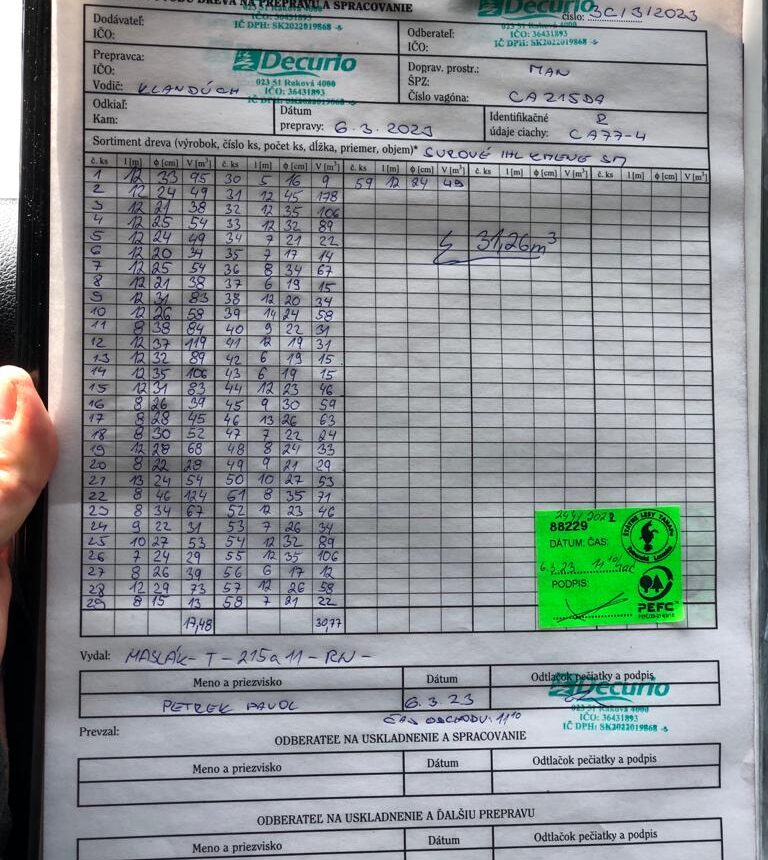 DREVA NA PREPRAVU A SPRACOVANIE
Decurio
023 51 Raková 4000
IČO: 36431893
IČ DPH: SK2022019868
Decurio
číslo: 3C/3/2023
IČO: 36431893
IČ DPH: SK2022019868
Dodávateľ:
IČO:
Odberateľ:
IČO:
Prepravca:
IČO:
Vodič: KLANDÚCH
Decurio
023 51 Raková 4000
IČO: 36431893
IČ DPH: SK2022019868
Doprav. prostr.: MAN
ŠPZ:
Číslo vagóna: CA215DA
Odkiaľ:
Kam:
Dátum
prepravy: 6.3.2023
Identifikačné
údaje ciachy: CA77-4
Sortiment dreva (výrobok, číslo ks, počet ks, dĺžka, priemer, objem)* SUROVÉ IHL KMENE SM
č. ks l [m] ϕ [cm] V [m³] č. ks l [m] ϕ [cm] V [m³] č. ks l [m] ϕ [cm] V [m³] č. ks l [m] ϕ [cm] V [m³] č. ks l [m] ϕ [cm] V [m³]
1 12 33 95 30 5 16 9 59 12 24 49
2 12 24 49 31 12 45 178
3 12 21 38 32 12 35 106
4 12 25 54 33 12 32 89
5 12 24 49 34 7 21 22
6 12 20 34 35 7 17 14
7 12 25 54 36 8 34 67
8 12 21 38 37 6 19 15
9 12 31 83 38 12 20 34
10 12 26 58 39 14 24 58
11 8 38 84 40 9 22 31
12 12 37 119 41 12 19 31
13 12 32 89 42 6 19 15
14 12 35 106 43 6 19 15
15 12 31 83 44 12 23 46
16 8 26 39 45 9 30 59
17 8 28 45 46 13 26 63
18 8 30 52 47 7 22 24
19 12 28 68 48 8 24 33
20 8 22 28 49 9 21 29
21 13 24 54 50 10 27 53
22 8 46 124 51 8 35 71
23 8 34 67 52 12 23 46
24 9 22 31 53 7 26 34
25 10 27 53 54 12 32 89
26 7 24 29 55 12 35 106
27 8 26 39 56 6 17 12
28 12 29 73 57 12 26 58
29 8 15 13 58 7 21 22
17,48 30,77
31,26m³
88229
DÁTUM: ČAS:
6.3.23 11¹⁰
PODPIS:
ŠTÁTNE LESY TANAPU
PEFC
Vydal: MASLÁK - T - 215a11 - RN -
Meno a priezvisko Dátum Odtlačok pečiatky a podpis
PETREK PAVOL 6.3.23
Decurio
023 51 Raková 4000
IČO: 36431893
IČ DPH: SK2022019868
ČAS ODCHODU: 11¹⁰
Prevzal:
ODBERATEĽ NA USKLADNENIE A SPRACOVANIE
Meno a priezvisko Dátum Odtlačok pečiatky a podpis
ODBERATEĽ NA USKLADNENIE A ĎALŠIU PREPRAVU
Meno a priezvisko Dátum Odtlačok pečiatky a podpis